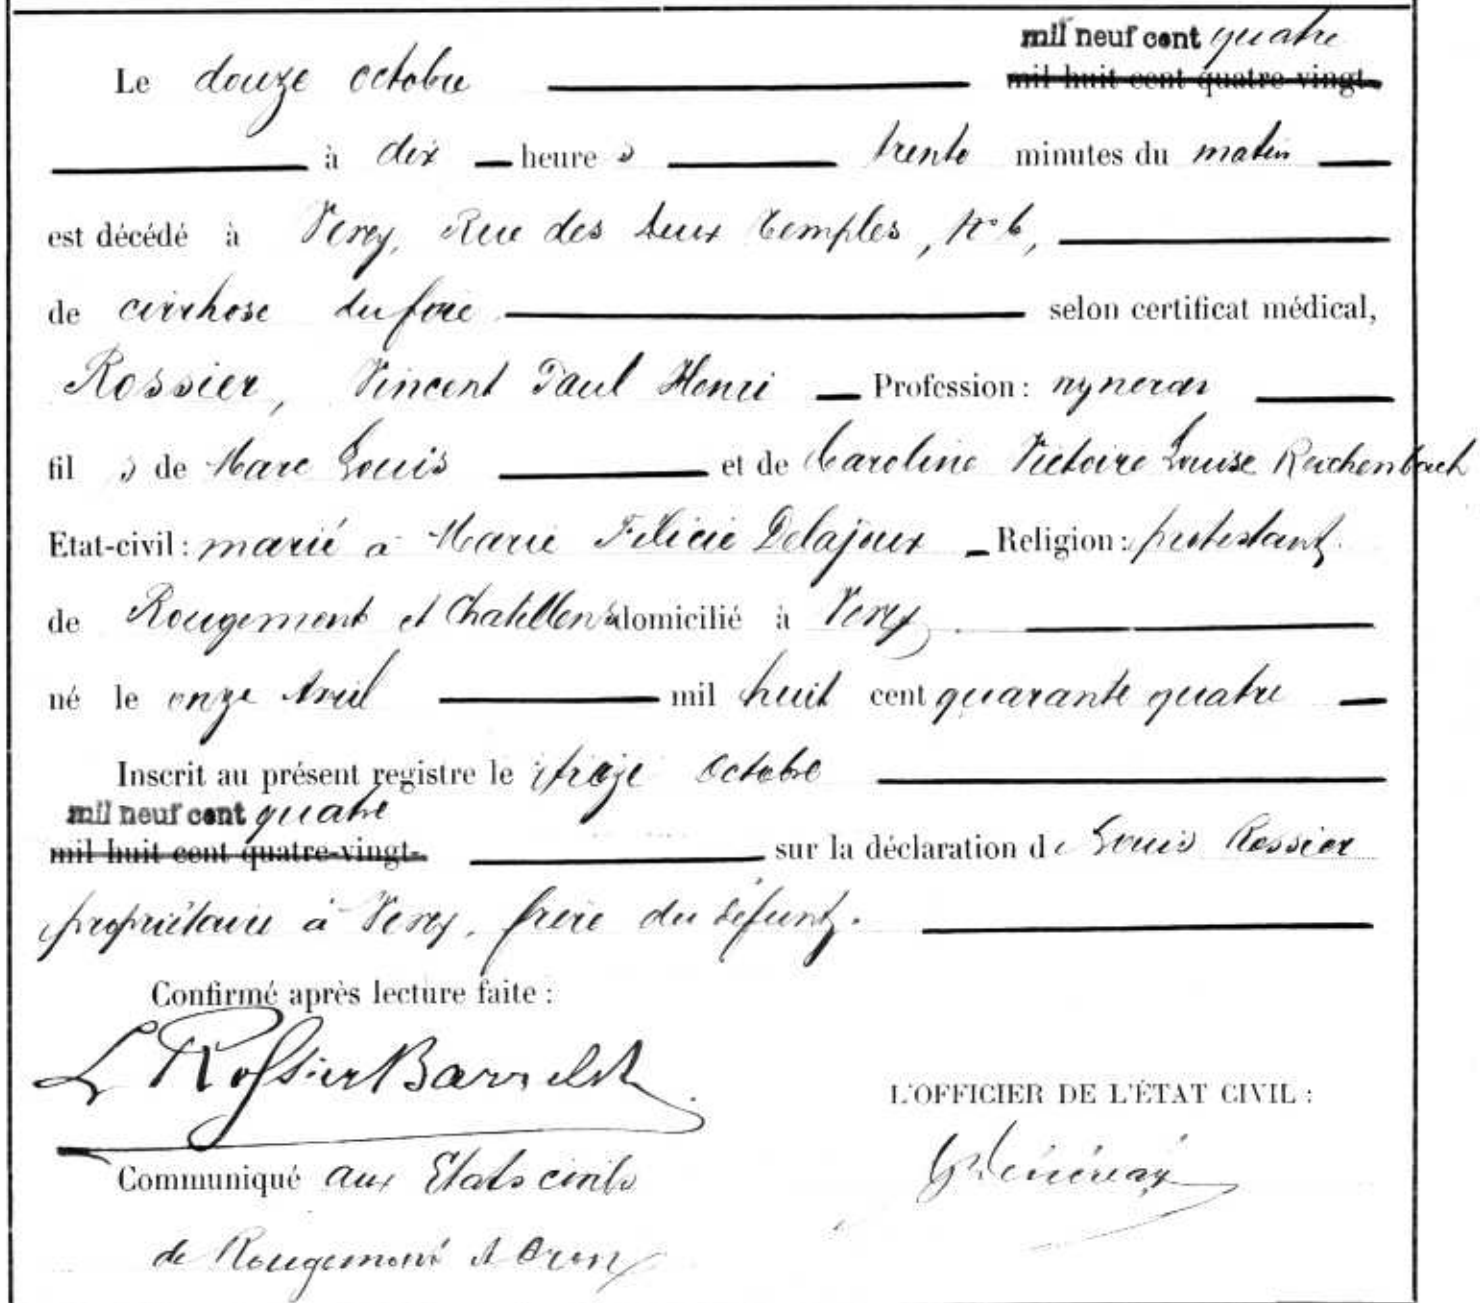 mil neuf cent quatre
Le douze octobre mil huit cent quatre-vingt-
à dix heures trente minutes du matin
est décédé à Vevey, Rue des Deux Temples, No 6,
de cirrhose du foie selon certificat médical,
Rossier, Vincent Paul Henri Profession :
fils de Marc Louis et de Caroline Victoire Louise Reichenbach
Etat-civil : marié à Marie Félicie Delajoux Religion : protestant.
de Rougemont et Chatillens domicilié à Vevey
né le onze Avril mil huit cent quarante quatre
Inscrit au présent registre le treize octobre
mil neuf cent quatre
mil huit cent quatre-vingt- sur la déclaration de Louis Rossier
propriétaire à Vevey, frère du défunt.
Confirmé après lecture faite :
L Rossier Barrelet
L'OFFICIER DE L'ÉTAT CIVIL :
Communiqué aux Etats civils
de Rougemont et Oron